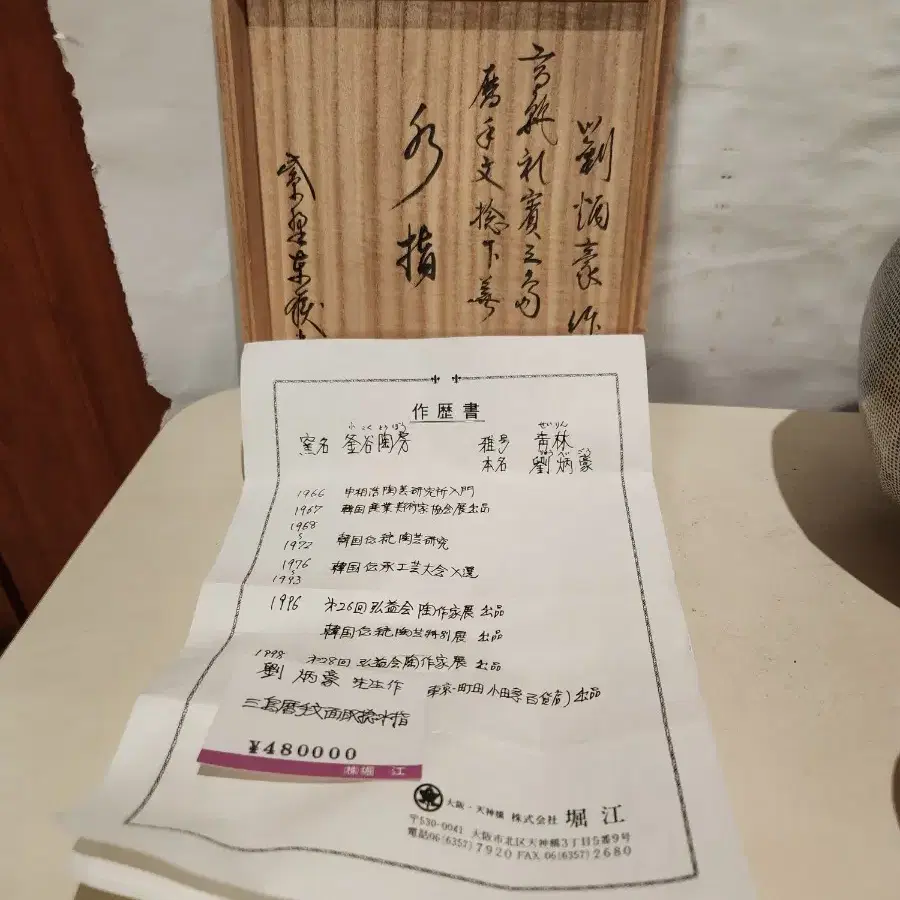 劉炳豪作
高麗礼賓三島
暦手文捻下蕪
水指
作歴書
窯名 釜谷陶房
せいりん
雅号 青林
本名 劉炳豪
1966 申相浩陶芸研究所入門
1967 韓国産業美術家協会展出品
1968
〜
1972 韓国伝統陶芸研究
1976
〜
1993 韓国伝承工芸大会入選
1996 第26回弘益会陶作家展 出品
韓国伝統陶芸特別展 出品
1998 第28回弘益会陶作家展 出品
東京・町田小田急百貨店)出品
劉炳豪先生作
三島暦手文面取捻水指
¥480000
㈱堀江
大阪・天神橋 株式会社 堀江
〒530-0041 大阪市北区天神橋3丁目5番9号
電話06(6353)7920 FAX.06(6357)2680